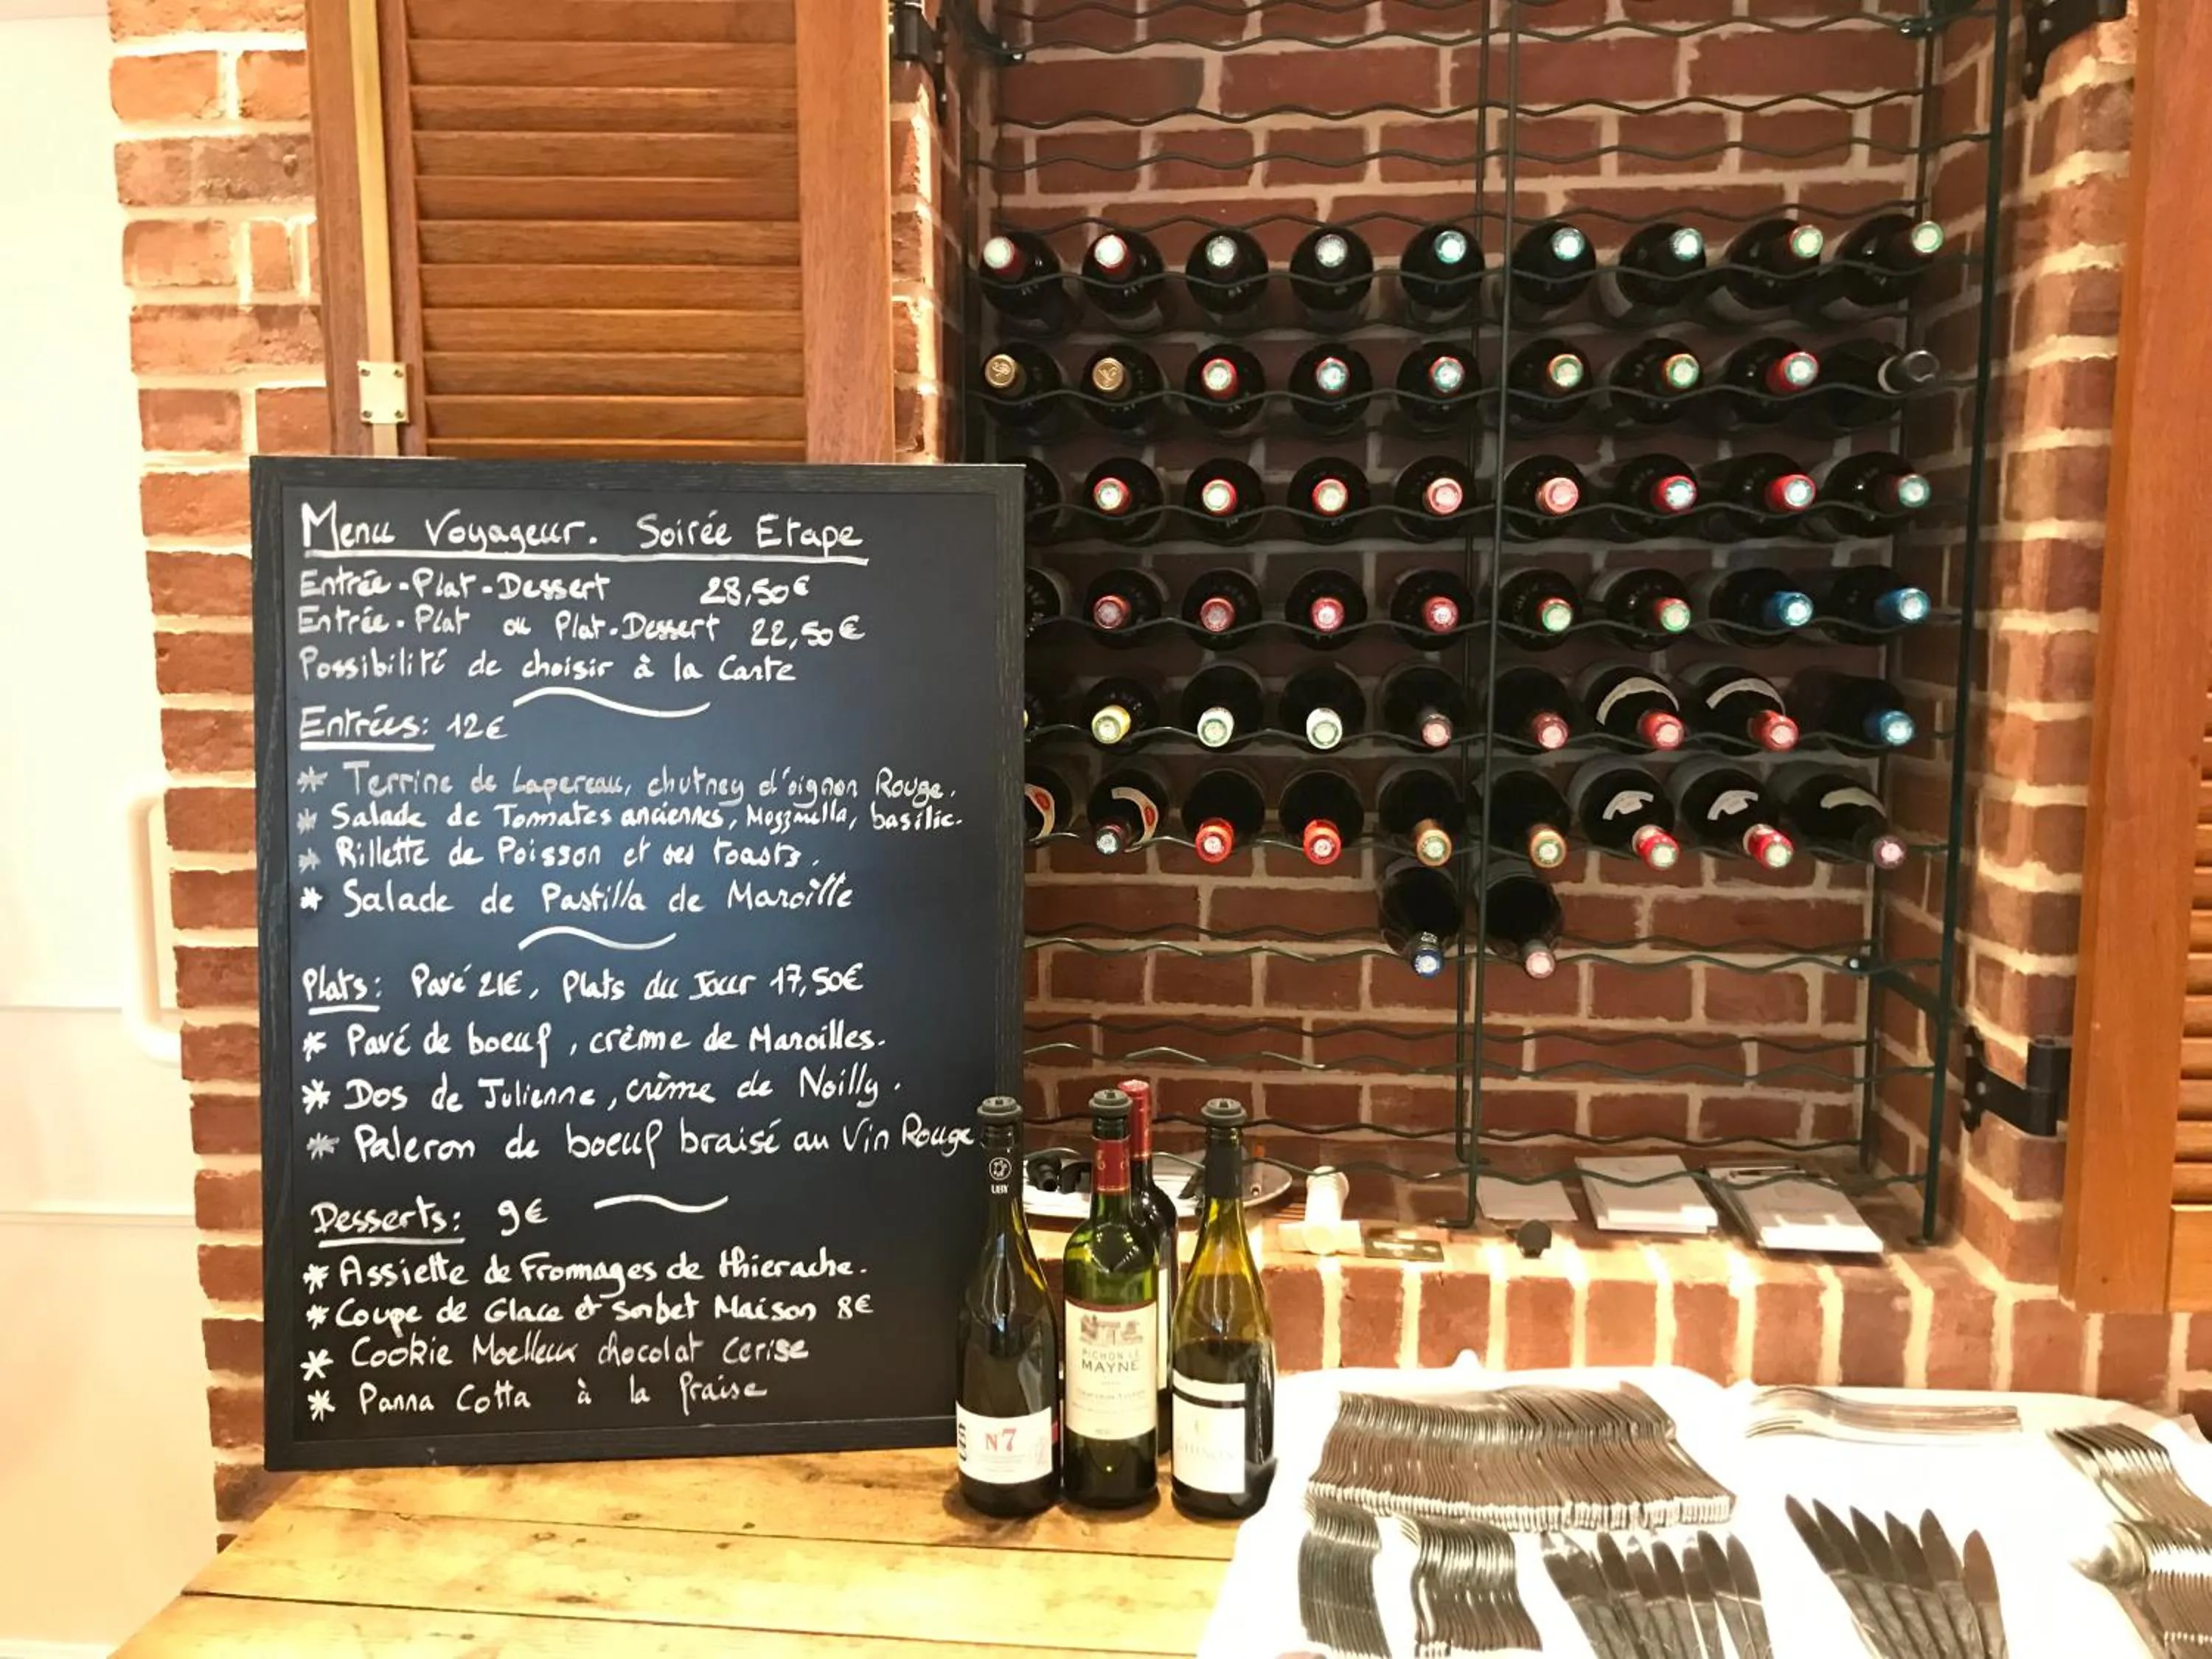 Menu Voyageur. Soirée Etape
Entrée-Plat-Dessert 28,50€
Entrée-Plat ou Plat-Dessert 22,50€
Possibilité de choisir à la Carte
Entrées: 12€
* Terrine de Lapereau, chutney d'oignon Rouge.
* Salade de Tomates anciennes, Mozzarella, basilic.
* Rillette de Poisson et ses toasts.
* Salade de Pastilla de Maroille
Plats: Pavé 21€, Plats du Jour 17,50€
* Pavé de boeuf, crème de Maroilles.
* Dos de Julienne, crème de Noilly.
* Paleron de boeuf braisé au Vin Rouge
Desserts: 9€
* Assiette de Fromages de thierache.
* Coupe de Glace et Sorbet Maison 8€
* Cookie Moelleux chocolat Cerise
* Panna Cotta à la fraise
UBY
N7
PICHON LE
MAYNE